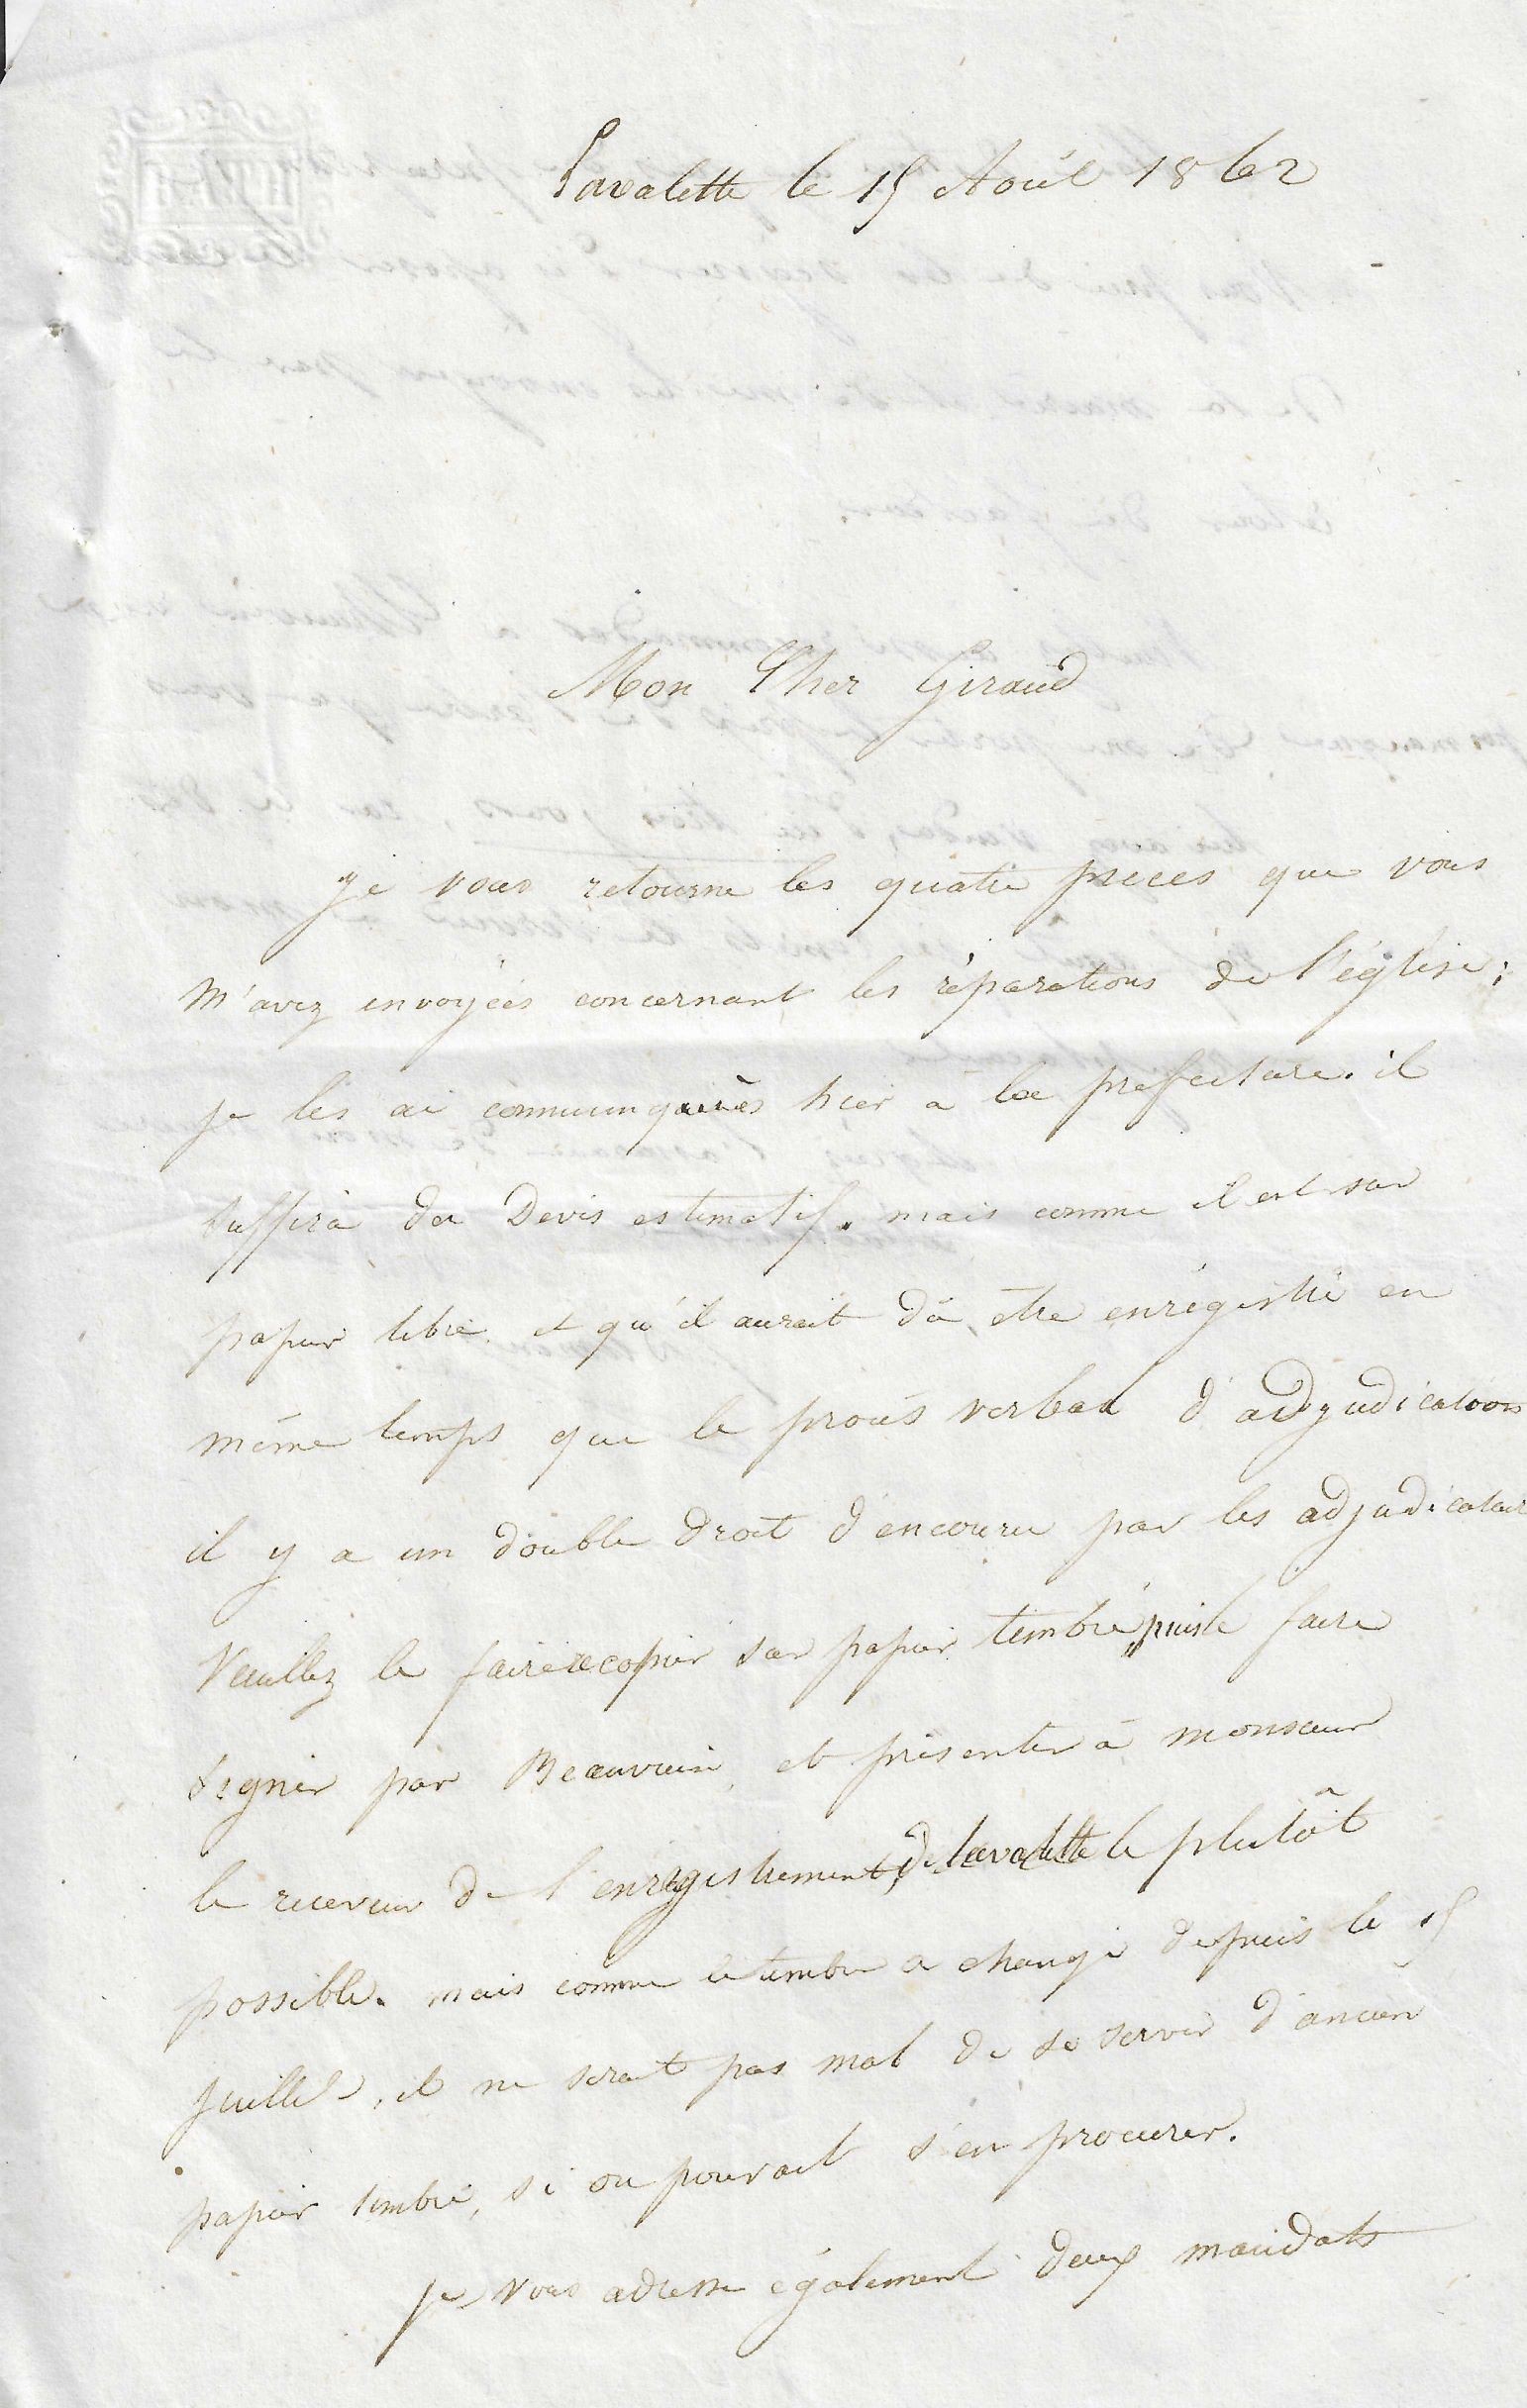 Lavalette le 15 Août 1862
Mon Cher Giraud
Je vous retourne les quatre pieces que vous
m'avez envoyées concernant les réparations de l'église;
je les ai communiquées hier à la prefecture. il
suffira du Devis estimatif. mais comme il est sur
papier libre et qu'il aurait dû être enrégistré en
même temps que le procès verbal d'adjudication
il y a un double droit d'encouru par les adjudicatair
Veuillez le faire recopier sur papier timbré, puis le faire
signer par Beauvrain, et présenter à monsieur
le receveur de l'enregistrement de Lavalette le plutôt
possible. mais comme le timbre a changé depuis le 15
juillet, il ne serait pas mal de se servir d'ancien
papier timbré, si on pouvait s'en procurer.
je vous adresse également deux mandats